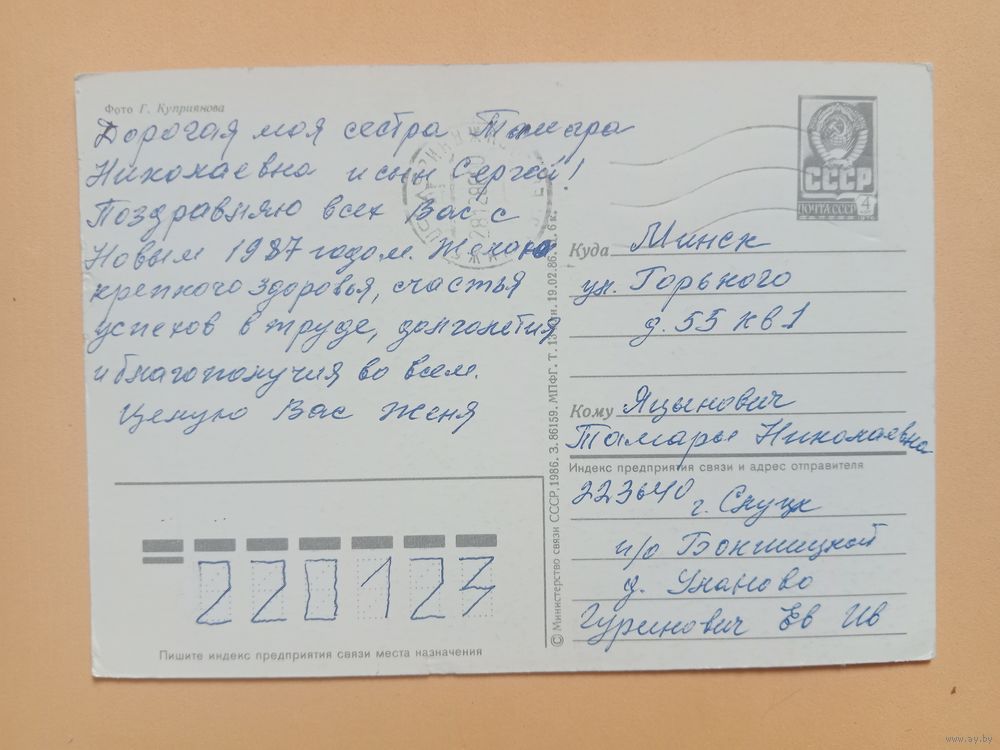 Фото Г. Куприянова
Дорогая моя сестра Тамара
Николаевна и сын Сергей!
Поздравляю всех Вас с
Новым 1987 годом. Желаю
крепкого здоровья, счастья
успехов в труде, долголетия
и благополучия во всем.
Целую Вас Женя
СССР
ПОЧТА СССР
4
Куда Минск
ул. Горького
д. 55 кв 1
Кому Яцынович
Тамары Николаевна
Индекс предприятия связи и адрес отправителя
223640 г. Слуцк
п/о
д. Уланово
Гуринович Ев Ив
© Министерство связи СССР, 1986. З. 86159. МПФГ. Т. 19.02.86. 6 к.
220123
Пишите индекс предприятия связи места назначения
www.ay.by